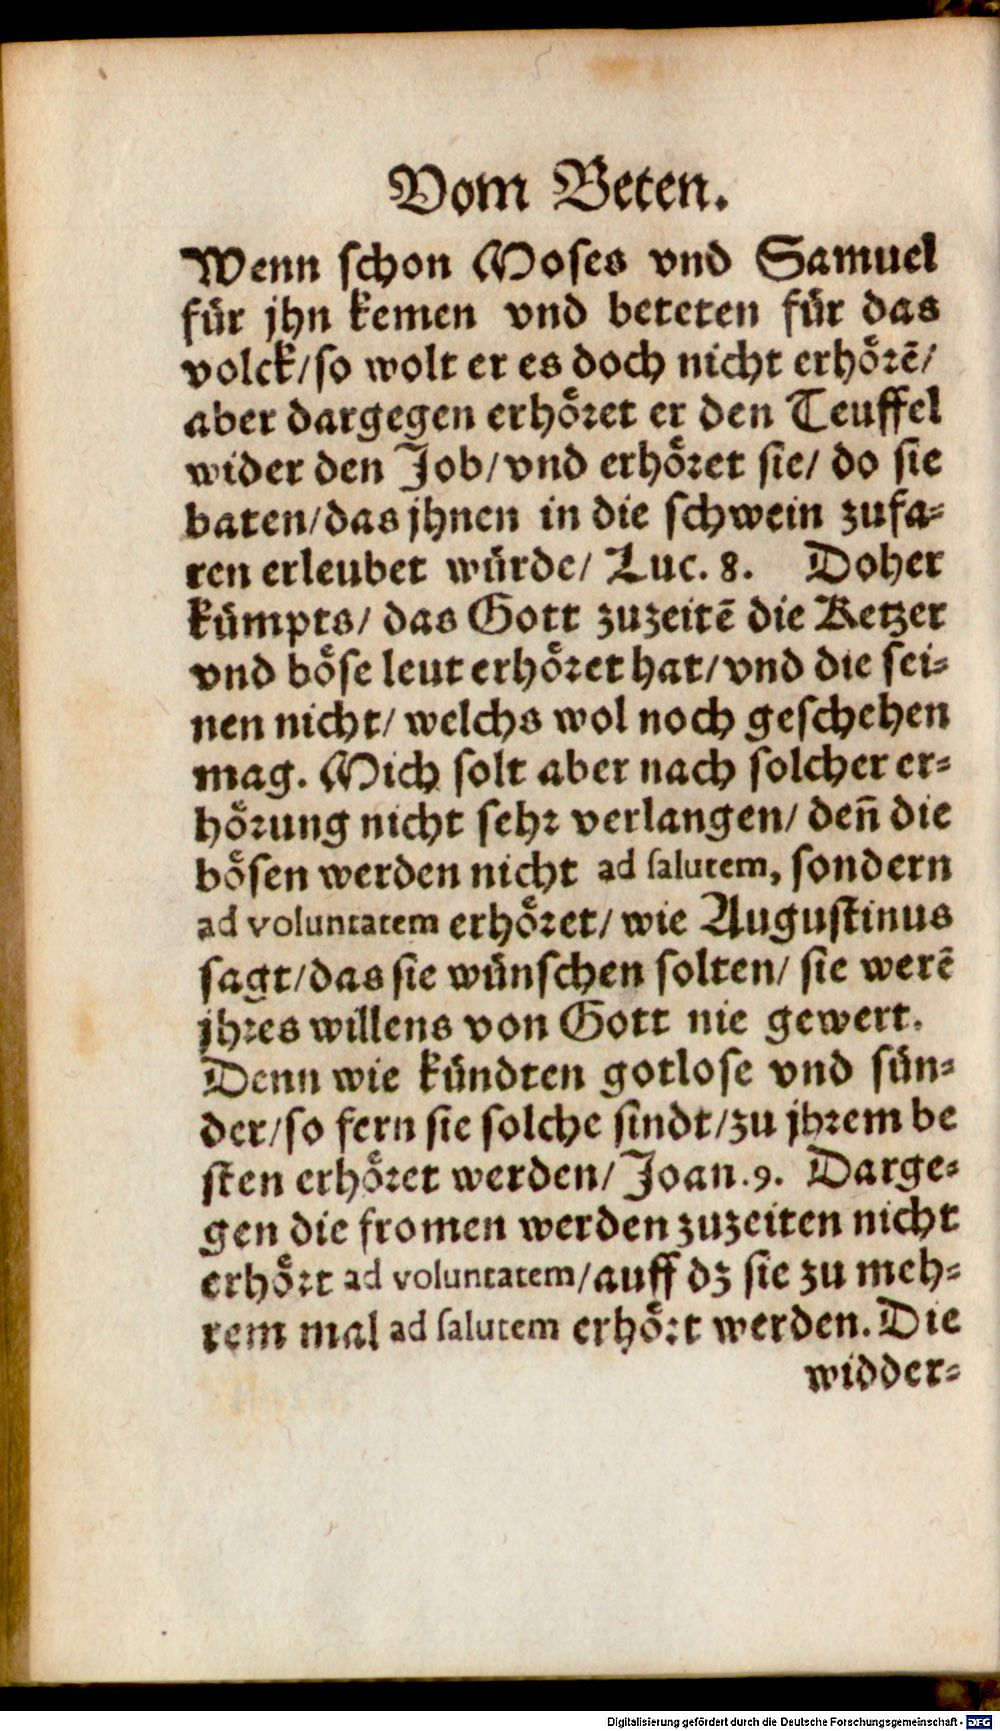 Vom Beten.
Wenn schon Moses vnd Samuel
für jhn kemen vnd beteten für das
volck/so wolt er es doch nicht erhörē/
aber dargegen erhöret er den Teuffel
wider den Job/vnd erhöret sie/ do sie
baten/das jhnen in die schwein zufa-
ren erleubet würde/ Luc. 8. Doher
kümpts/ das Gott zuzeitē die Ketzer
vnd böse leut erhöret hat/vnd die sei-
nen nicht/ welchs wol noch geschehen
mag. Mich solt aber nach solcher er-
hörung nicht sehr verlangen/ deñ die
bösen werden nicht ad salutem, sondern
ad voluntatem erhöret/ wie Augustinus
sagt/das sie wünschen solten/ sie werē
jhres willens von Gott nie gewert.
Denn wie kündten gotlose vnd sün-
der/so fern sie solche sindt/zu jhrem be
sten erhöret werden/ Joan.9. Darge-
gen die fromen werden zuzeiten nicht
erhört ad voluntatem/auff dz sie zu meh-
rem mal ad salutem erhört werden. Die
widder-
Digitalisierung gefördert durch die Deutsche Forschungsgemeinschaft - DFG